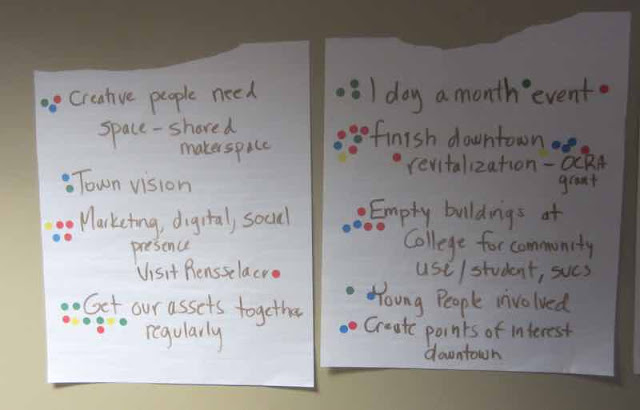 Creative people need
space - shared
makerspace
Town vision
Marketing, digital, social
presence
Visit Rensselaer
Get our assets together
regularly
1 day a month event
finish downtown
revitalization - OCRA
grant
Empty buildings at
College for community
use / student, svcs
Young People involved
Create points of interest
downtown